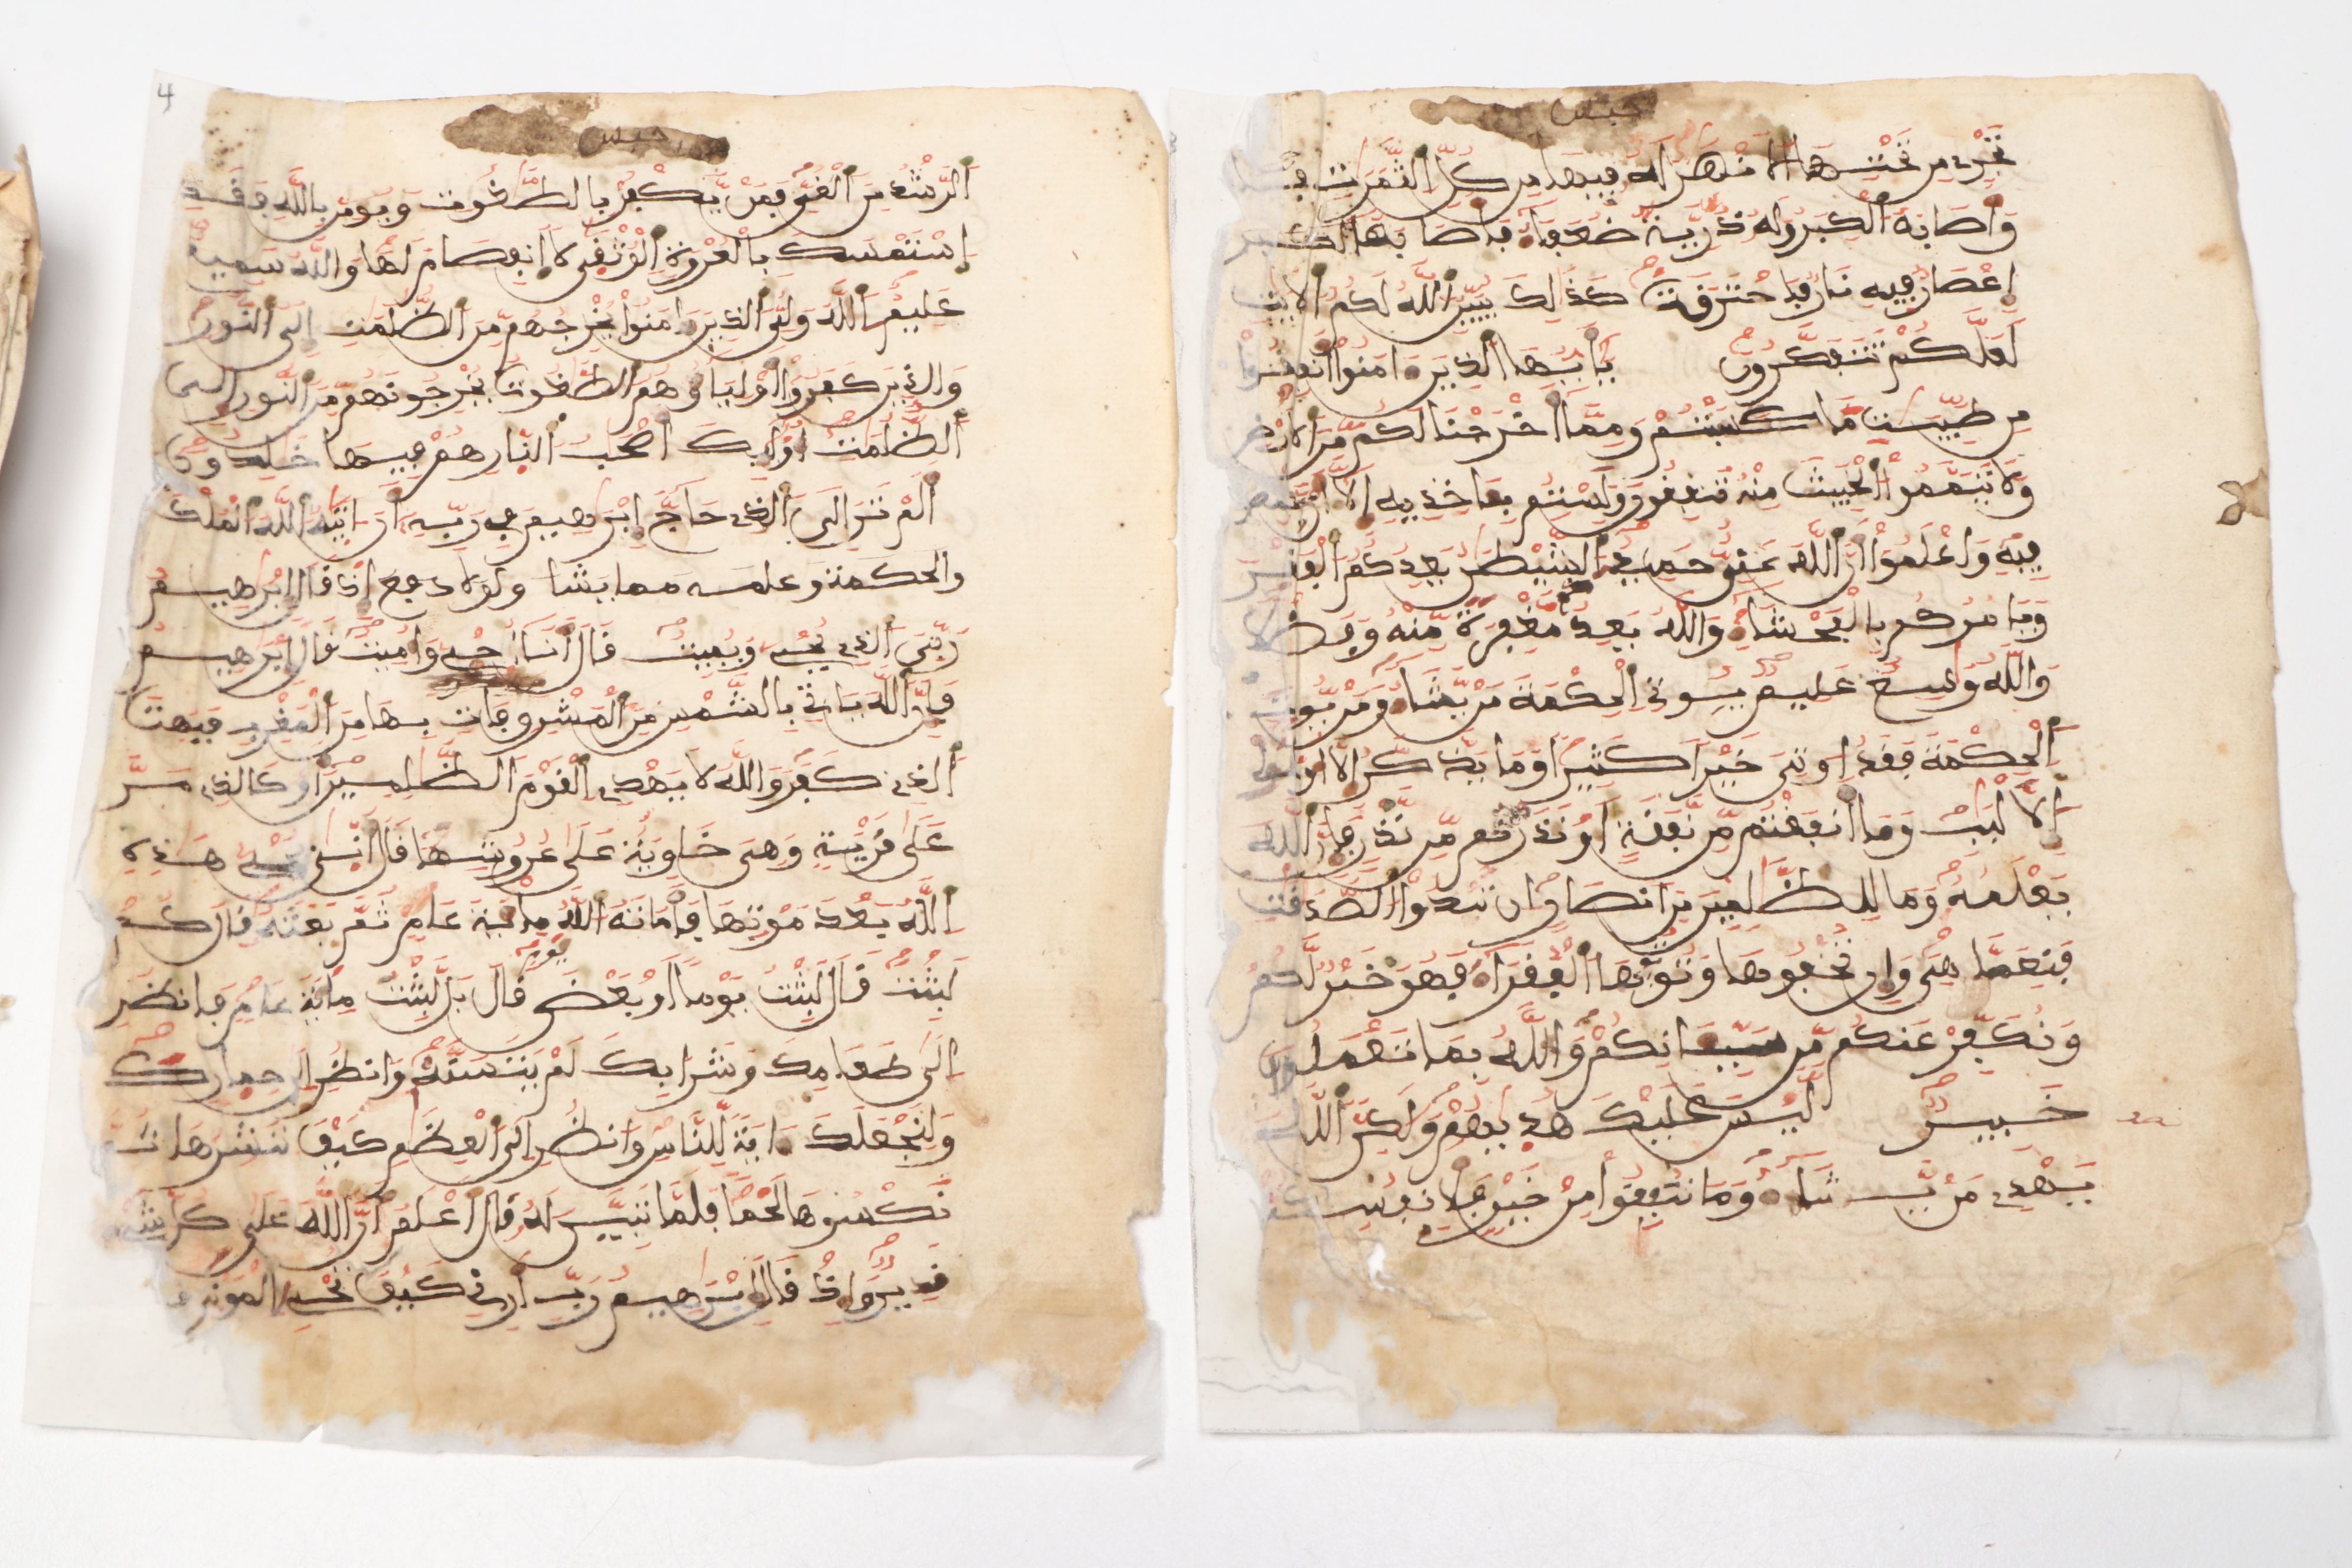 حبس
الرشد من الغي فمن يكفر بالطغوت ويومن بالله فقد
استمسك بالعروة الوثقى لا انفصام لها والله سميع
عليم الله ولي الذين ءامنوا يخرجهم من الظلمت الى النور
والذين كفروا اولياؤهم الطغوت يخرجونهم من النور الى
الظلمت اولئك اصحب النار هم فيها خلدون
الم تر الى الذي حاج ابرهيم في ربه ان اتيه الله الملك
والحكمة وعلمه مما يشا ولولا دفع اذ قال ابرهيم
ربي الذي يحي ويميت قال انا احي واميت قال ابرهيم
فان الله ياتي بالشمس من المشرق فات بها من المغرب فبهت
الذي كفر والله لا يهدي القوم الظلمين او كالذي مر
على قرية وهي خاوية على عروشها قال اني يحي هذه
الله بعد موتها فاماته الله ماية عام ثم بعثه قال كم
لبثت قال لبثت يوما او بعض يوم قال بل لبثت ماية عام فانظر
الى طعامك وشرابك لم يتسنه وانظر الى حمارك
ولنجعلك ءاية للناس وانظر الى العظم كيف ننشرها ثم
نكسوها لحما فلما تبين له قال اعلم ان الله على كل شي
قدير واذ قال ابرهيم رب ارني كيف تحي الموتى
حبس
تجري من تحتها الانهر له فيها من كل الثمرت
واصابه الكبر وله ذرية ضعفاء فاصابها
اعصار فيه نار فاحترقت كذلك يبين الله لكم الايت
لعلكم تتفكرون يايها الذين ءامنوا انفقوا
من طيبت ما كسبتم ومما اخرجنا لكم من الارض
ولا تيمموا الخبيث منه تنفقون ولستم بئاخذيه الا ان تغمضوا
فيه واعلموا ان الله غني حميد الشيطن يعدكم الفقر
ويامركم بالفحشاء والله يعدكم مغفرة منه وفضلا
والله وسع عليم يوتي الحكمة من يشاء ومن يوت
الحكمة فقد اوتي خيرا كثيرا وما يذكر الا اولوا
الالبب وما انفقتم من نفقة او نذرتم من نذر فان الله
يعلمه وما للظلمين من انصار ان تبدوا الصدقت
فنعما هي وان تخفوها وتوتوها الفقراء فهو خير لكم
ونكفر عنكم من سيئاتكم والله بما تعملون
خبير ليس عليك هديهم ولكن الله
يهدي من يشاء وما تنفقوا من خير فلانفسكم